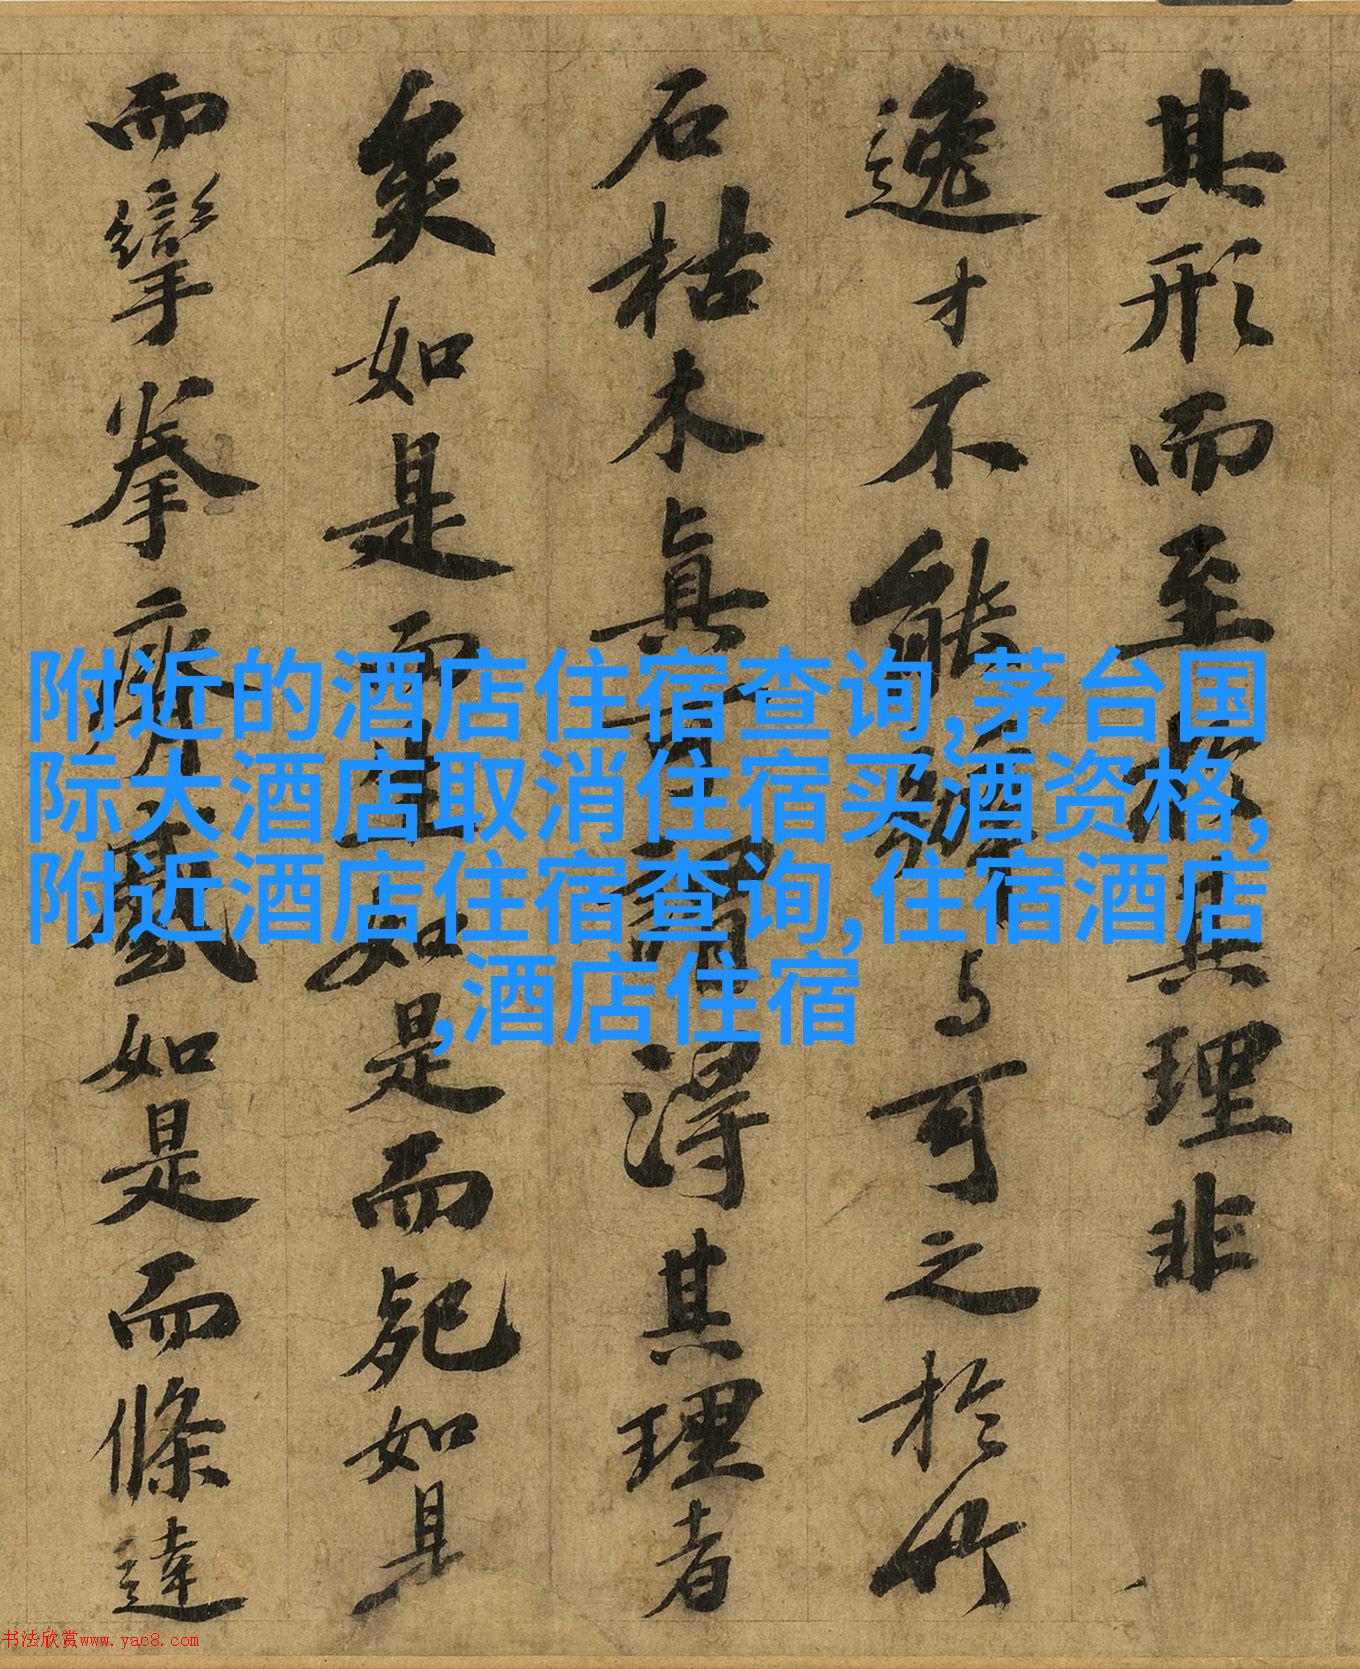 其形而至於其理非
逸才不能辨与可之於竹
石枯木真可謂得其理者
矣如是而生如是而死如是
而攣拳瘠蹙如是而條達
附近的酒店住宿查询,茅台国
际大酒店取消住宿买酒资格,
附近酒店住宿查询,住宿酒店
,酒店住宿
书法欣赏www.yac8.com